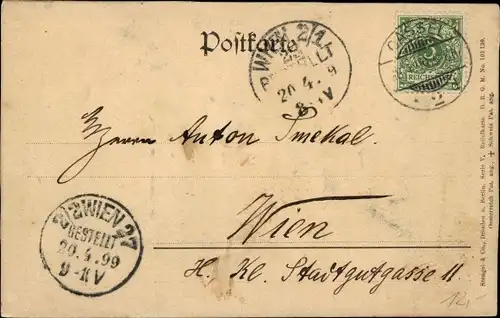 Postkarte
WIEN 2/1
BESTELLT
20.4.9
8 V
5
REICHSPOST
Herrn Anton Smekal.
Wien
II. Kl. Stadtgutgasse 11
2/2 WIEN 27
BESTELLT
20.4.99
9-11 V
Stengel & Co., Dresden u. Berlin. Serie V, Reliefkarte. D. R. G. M. No. 101 138.
Oesterreich Pat. ang. + Schweiz Pat. ang.
12,-